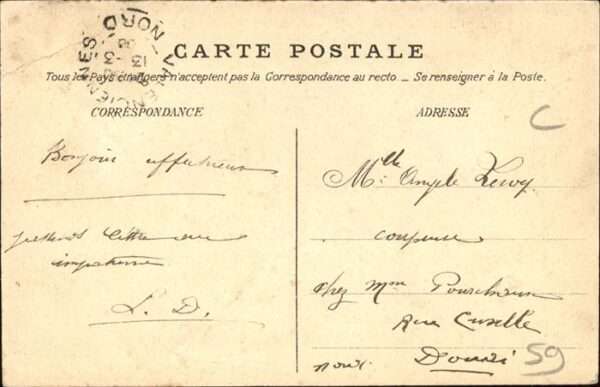 CARTE POSTALE
Tous les Pays étrangers n'acceptent pas la Correspondance au recto. — Se renseigner à la Poste.
CORRESPONDANCE
ADRESSE
VALENCIENNES
NORD
13 - 3
C
Bonjour affectueux
J'attends lettre avec
impatience
L. D.
Mlle Angèle Leroy
couseuse
chez Mme
Rue Cuvelle
Douai
Nord
59